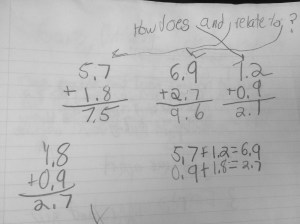 How does and relate to ?
5.7 6.9 1.2
+1.8 +2.7 +0.9
7.5 9.6 2.1
1.8 5.7+1.2=6.9
+0.9 0.9+1.8=2.7
2.7